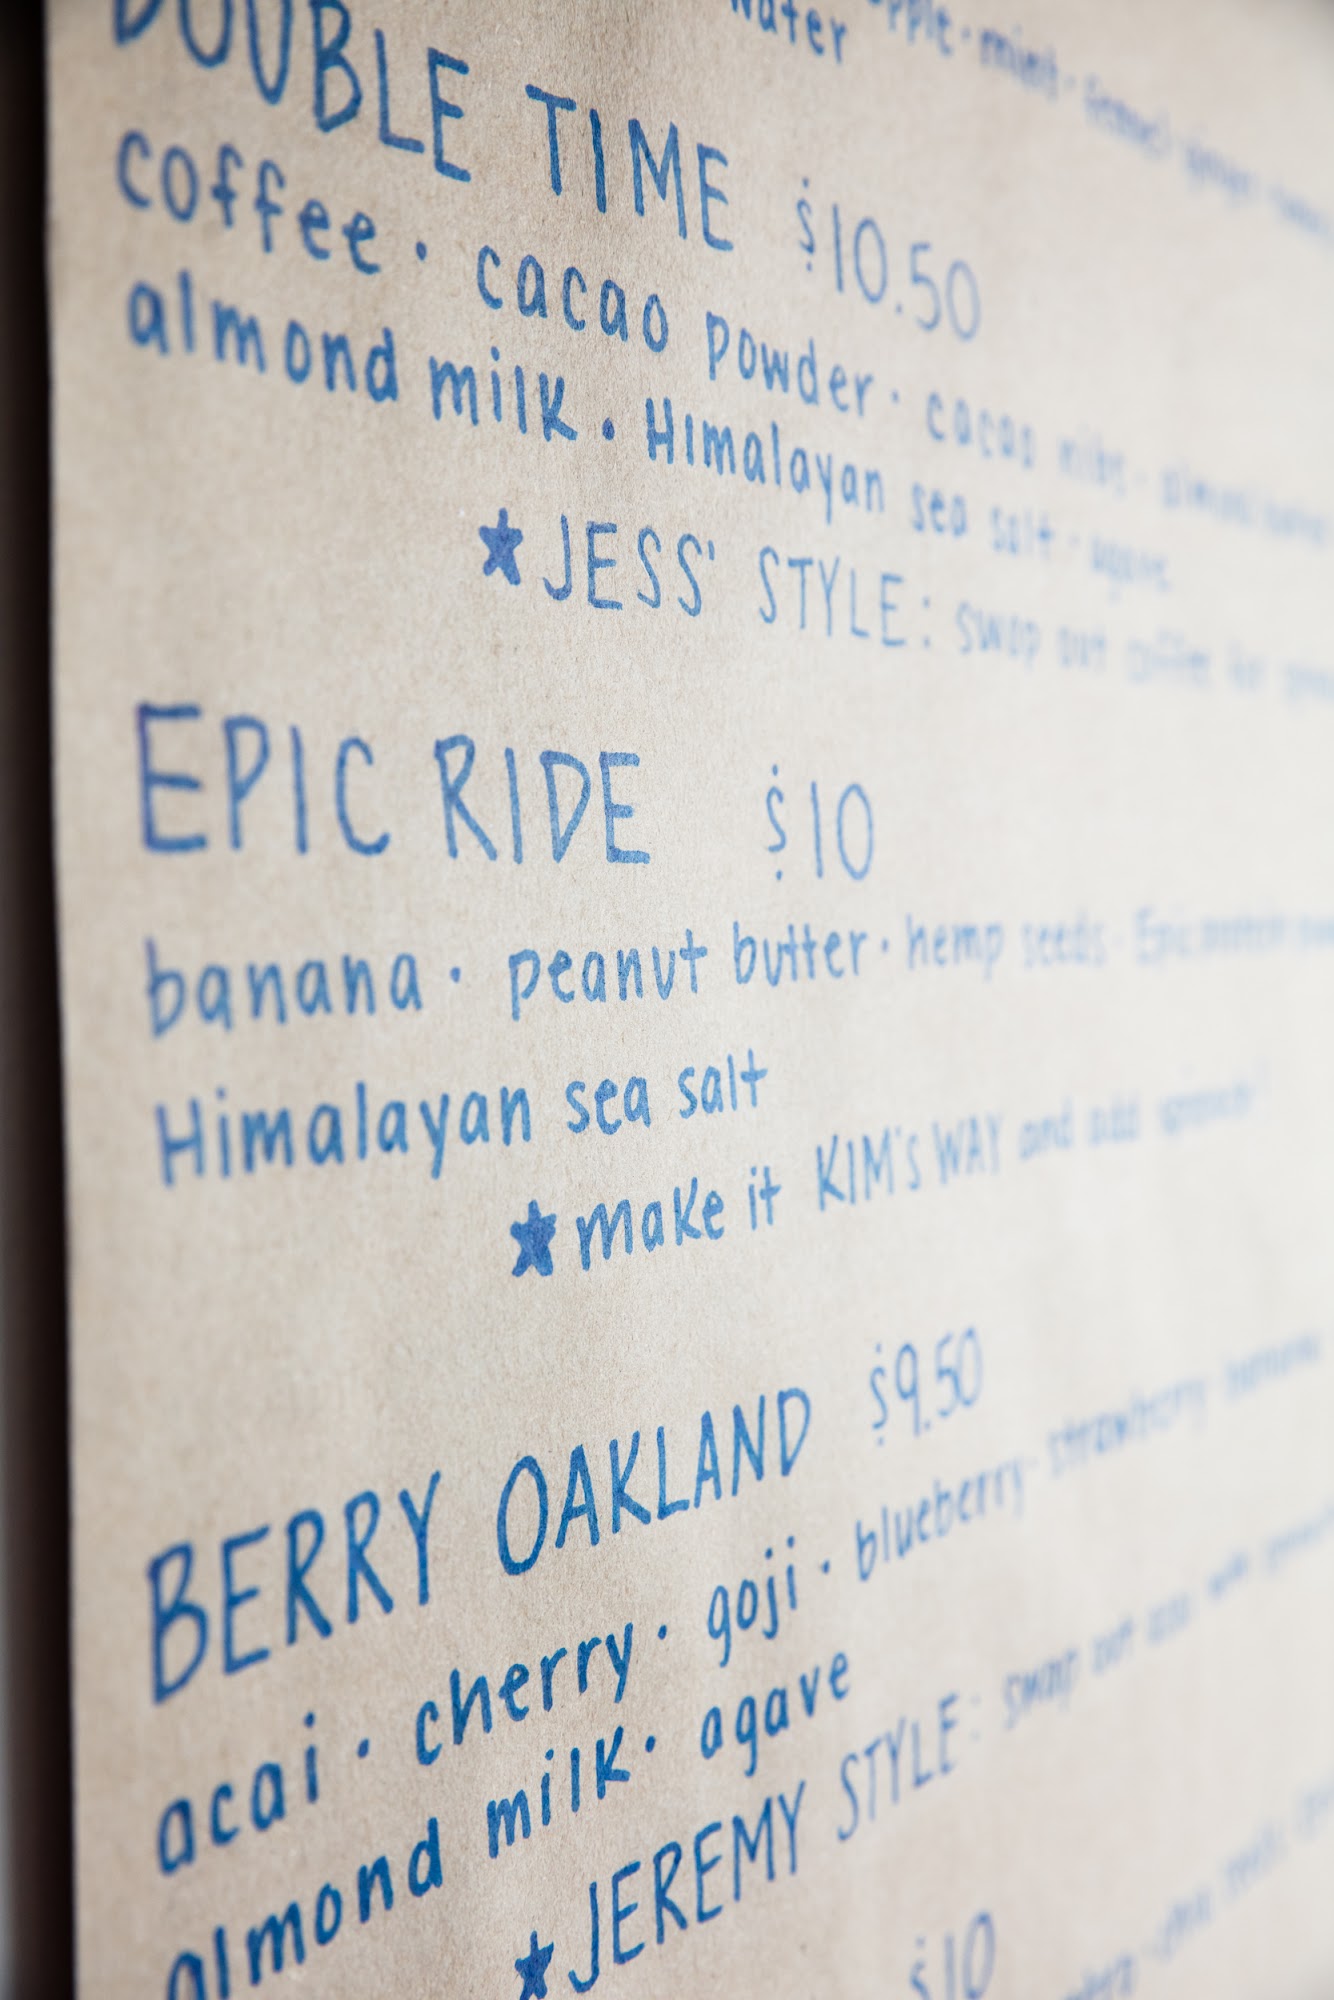 water
mint ·
DOUBLE TIME $10.50
coffee · cacao powder · cacao nibs ·
almond milk · Himalayan sea salt · agave
★ JESS' STYLE: swap out coffee for
EPIC RIDE $10
banana · peanut butter · hemp seeds · Epic
Himalayan sea salt
★ make it KIM's WAY and add
BERRY OAKLAND $9.50
acai · cherry · goji · blueberry · strawberry · banana
almond milk · agave
★ JEREMY STYLE: swap out
$10